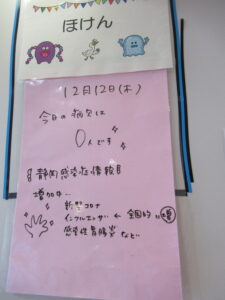 ほけん
12月12日(木)
今日の病欠は
0人です
静岡感染症情報
増加中…
新型コロナ
インフルエンザ ← 全国的に増
感染性胃腸炎 など…